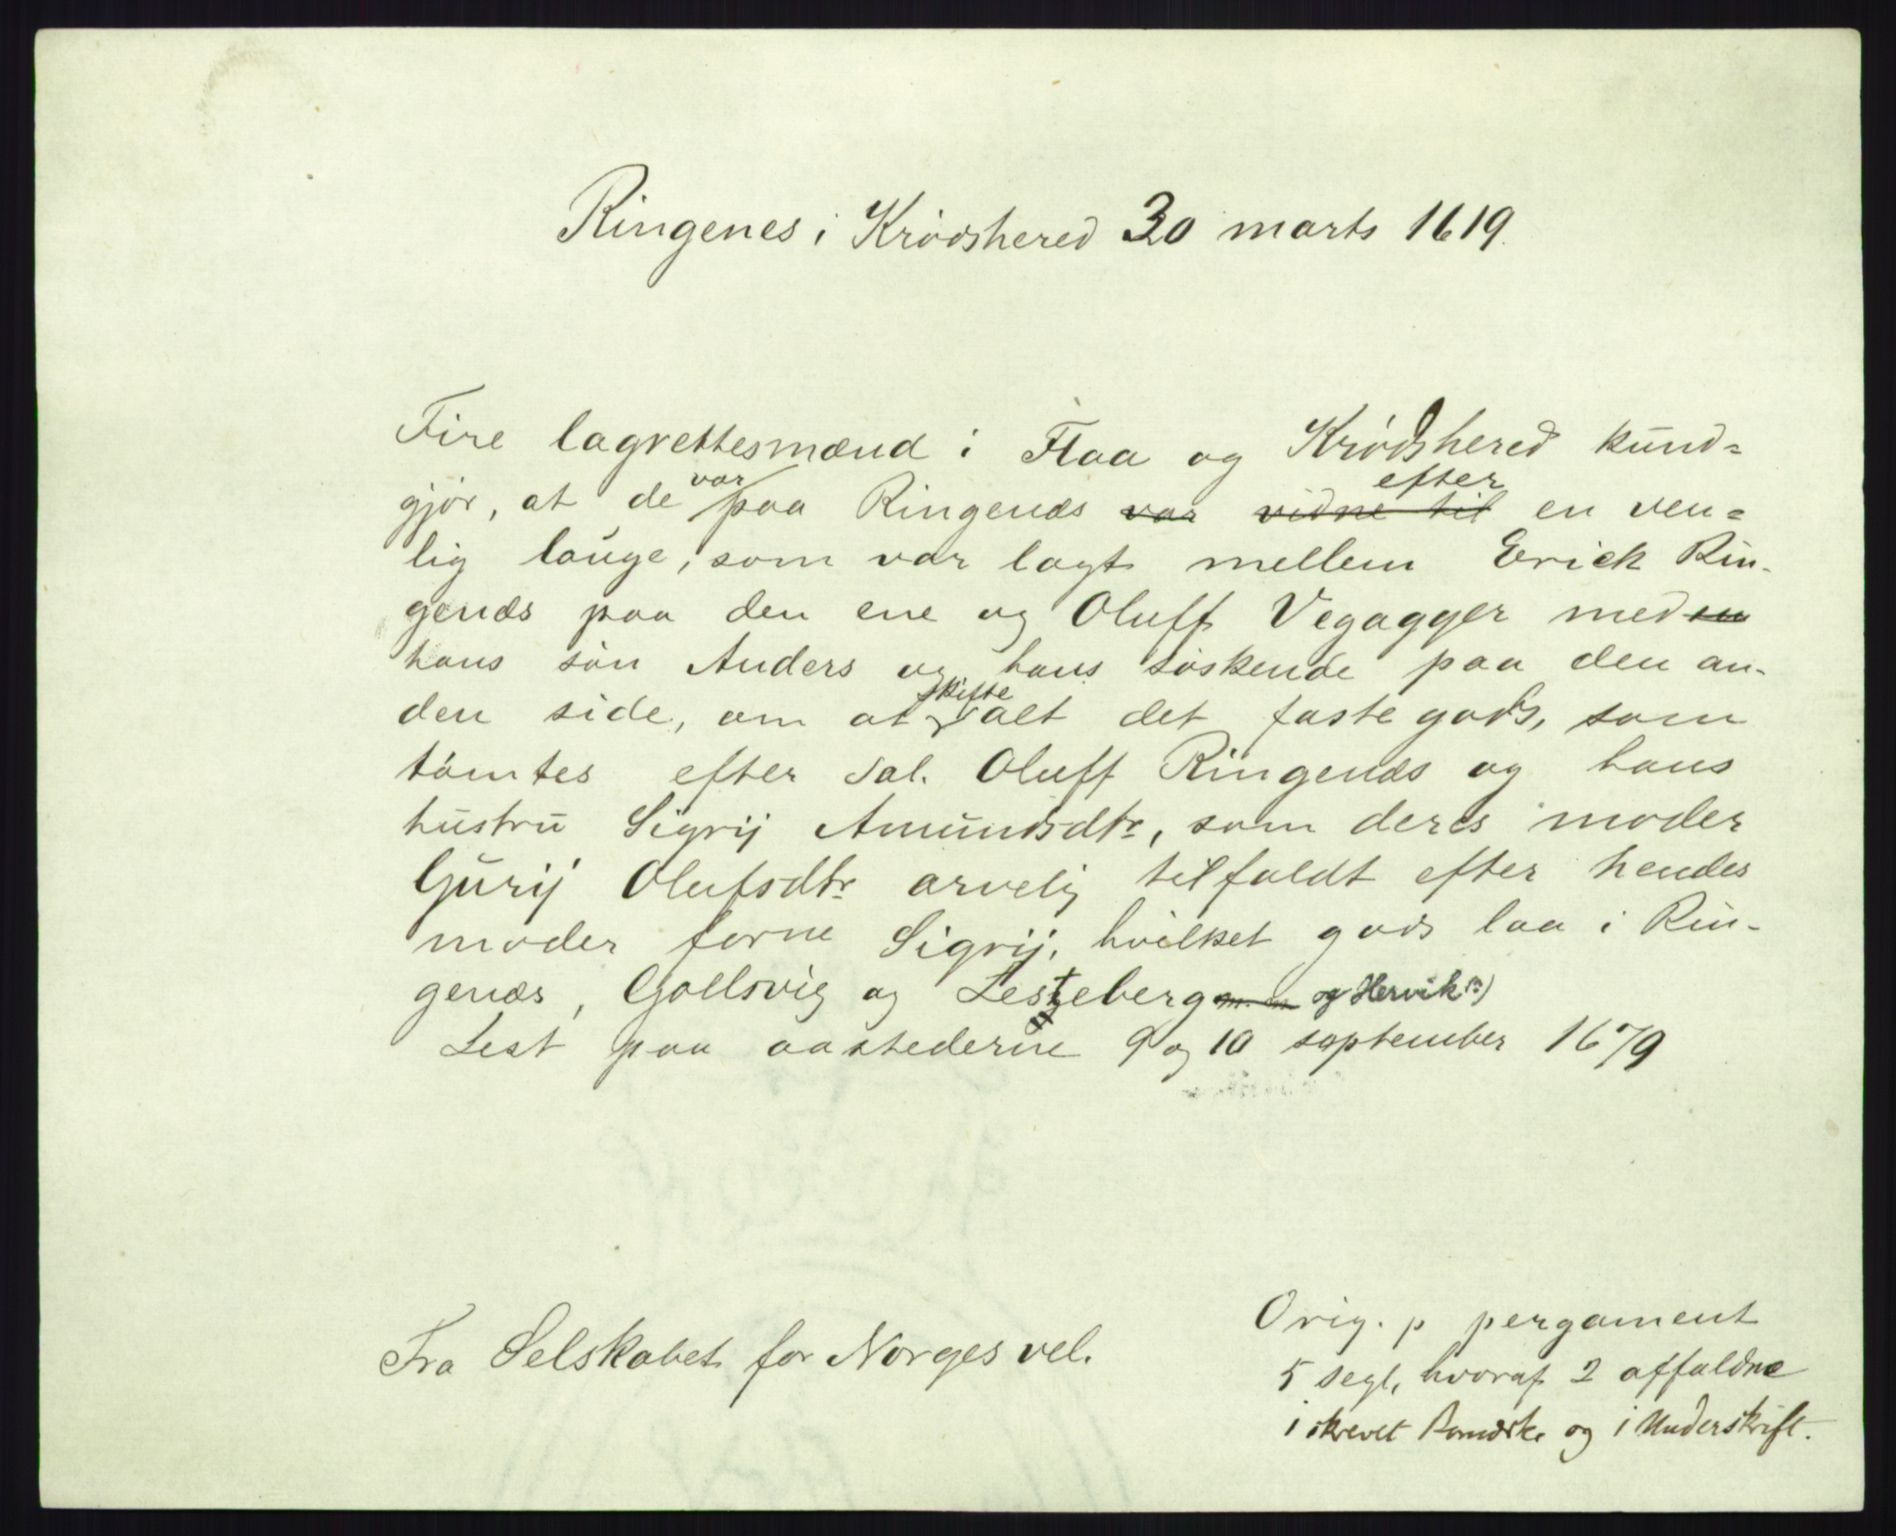 Ringenes i Krødshered 30 marts 1619.
Fire lagrettesmænd i Flaa og Krødshered kund=
gjør, at de var paa Ringenæs var vidne til efter en ven=
lig louge, som var lagt mellem Erick Rin-
genæs paa den ene og Oluff Vegagger med en
hans søn Anders og hans søskende paa den an-
den side, om at skifte alt det faste gods, som
tømtes efter sal. Oluff Ringenæs og hans
hustru Sigrij Amundsdtr, som deres moder
Gurij Olufsdtr arvelig tilfaldt efter hendes
moder forne Sigrij, hvilket gods laa i Rin-
genæs, Gollsvig og Lesteberg og Hervik(?)
Lest paa aastederne 9 og 10 september 1679
Fra Selskabet for Norges vel.
Orig. p pergament
5 segl, hvoraf 2 affaldne
i skrevet Bomærke og i Underskrift.